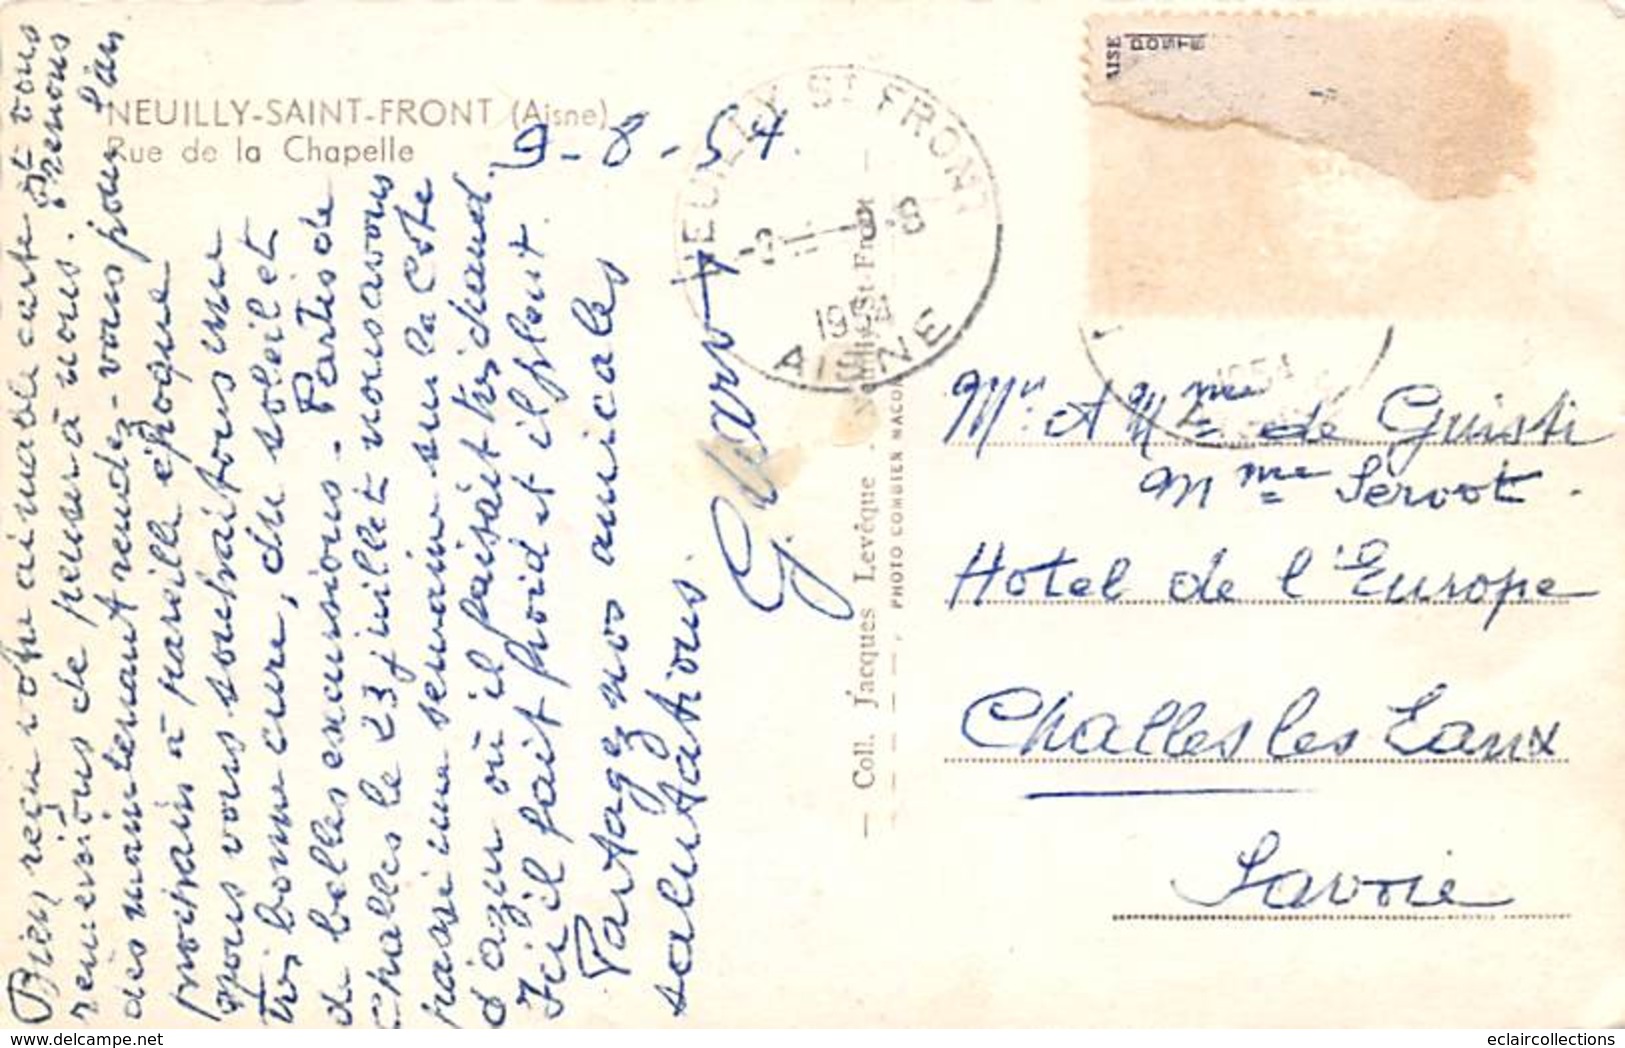 NEUILLY-SAINT-FRONT (Aisne)
Rue de la Chapelle
9-8-54.
Bien reçu votre aimable carte et vous
remercions de penser à nous. Prenons
dès maintenant rendez-vous pour l'an
prochain à pareille époque
nous vous souhaitons une
très bonne cure, du soleil et
de belles excursions. Partis de
Challes le 23 juillet nous avons
passé une semaine sur la Cote
d'azur où il faisait très chaud.
Ici il fait froid et il pleut.
Partagez nos amicales
salutations.
NEUILLY ST FRONT
1954
AISNE
AISE
POSTE
1954
— Coll. Jacques Levèque - Neuilly-St-Front —
PHOTO COMBIER MACON
Mr. et Mme de Guisti
Mme Servot.
Hotel de l'Europe
Challes les Eaux
Savoie
eclaircollections